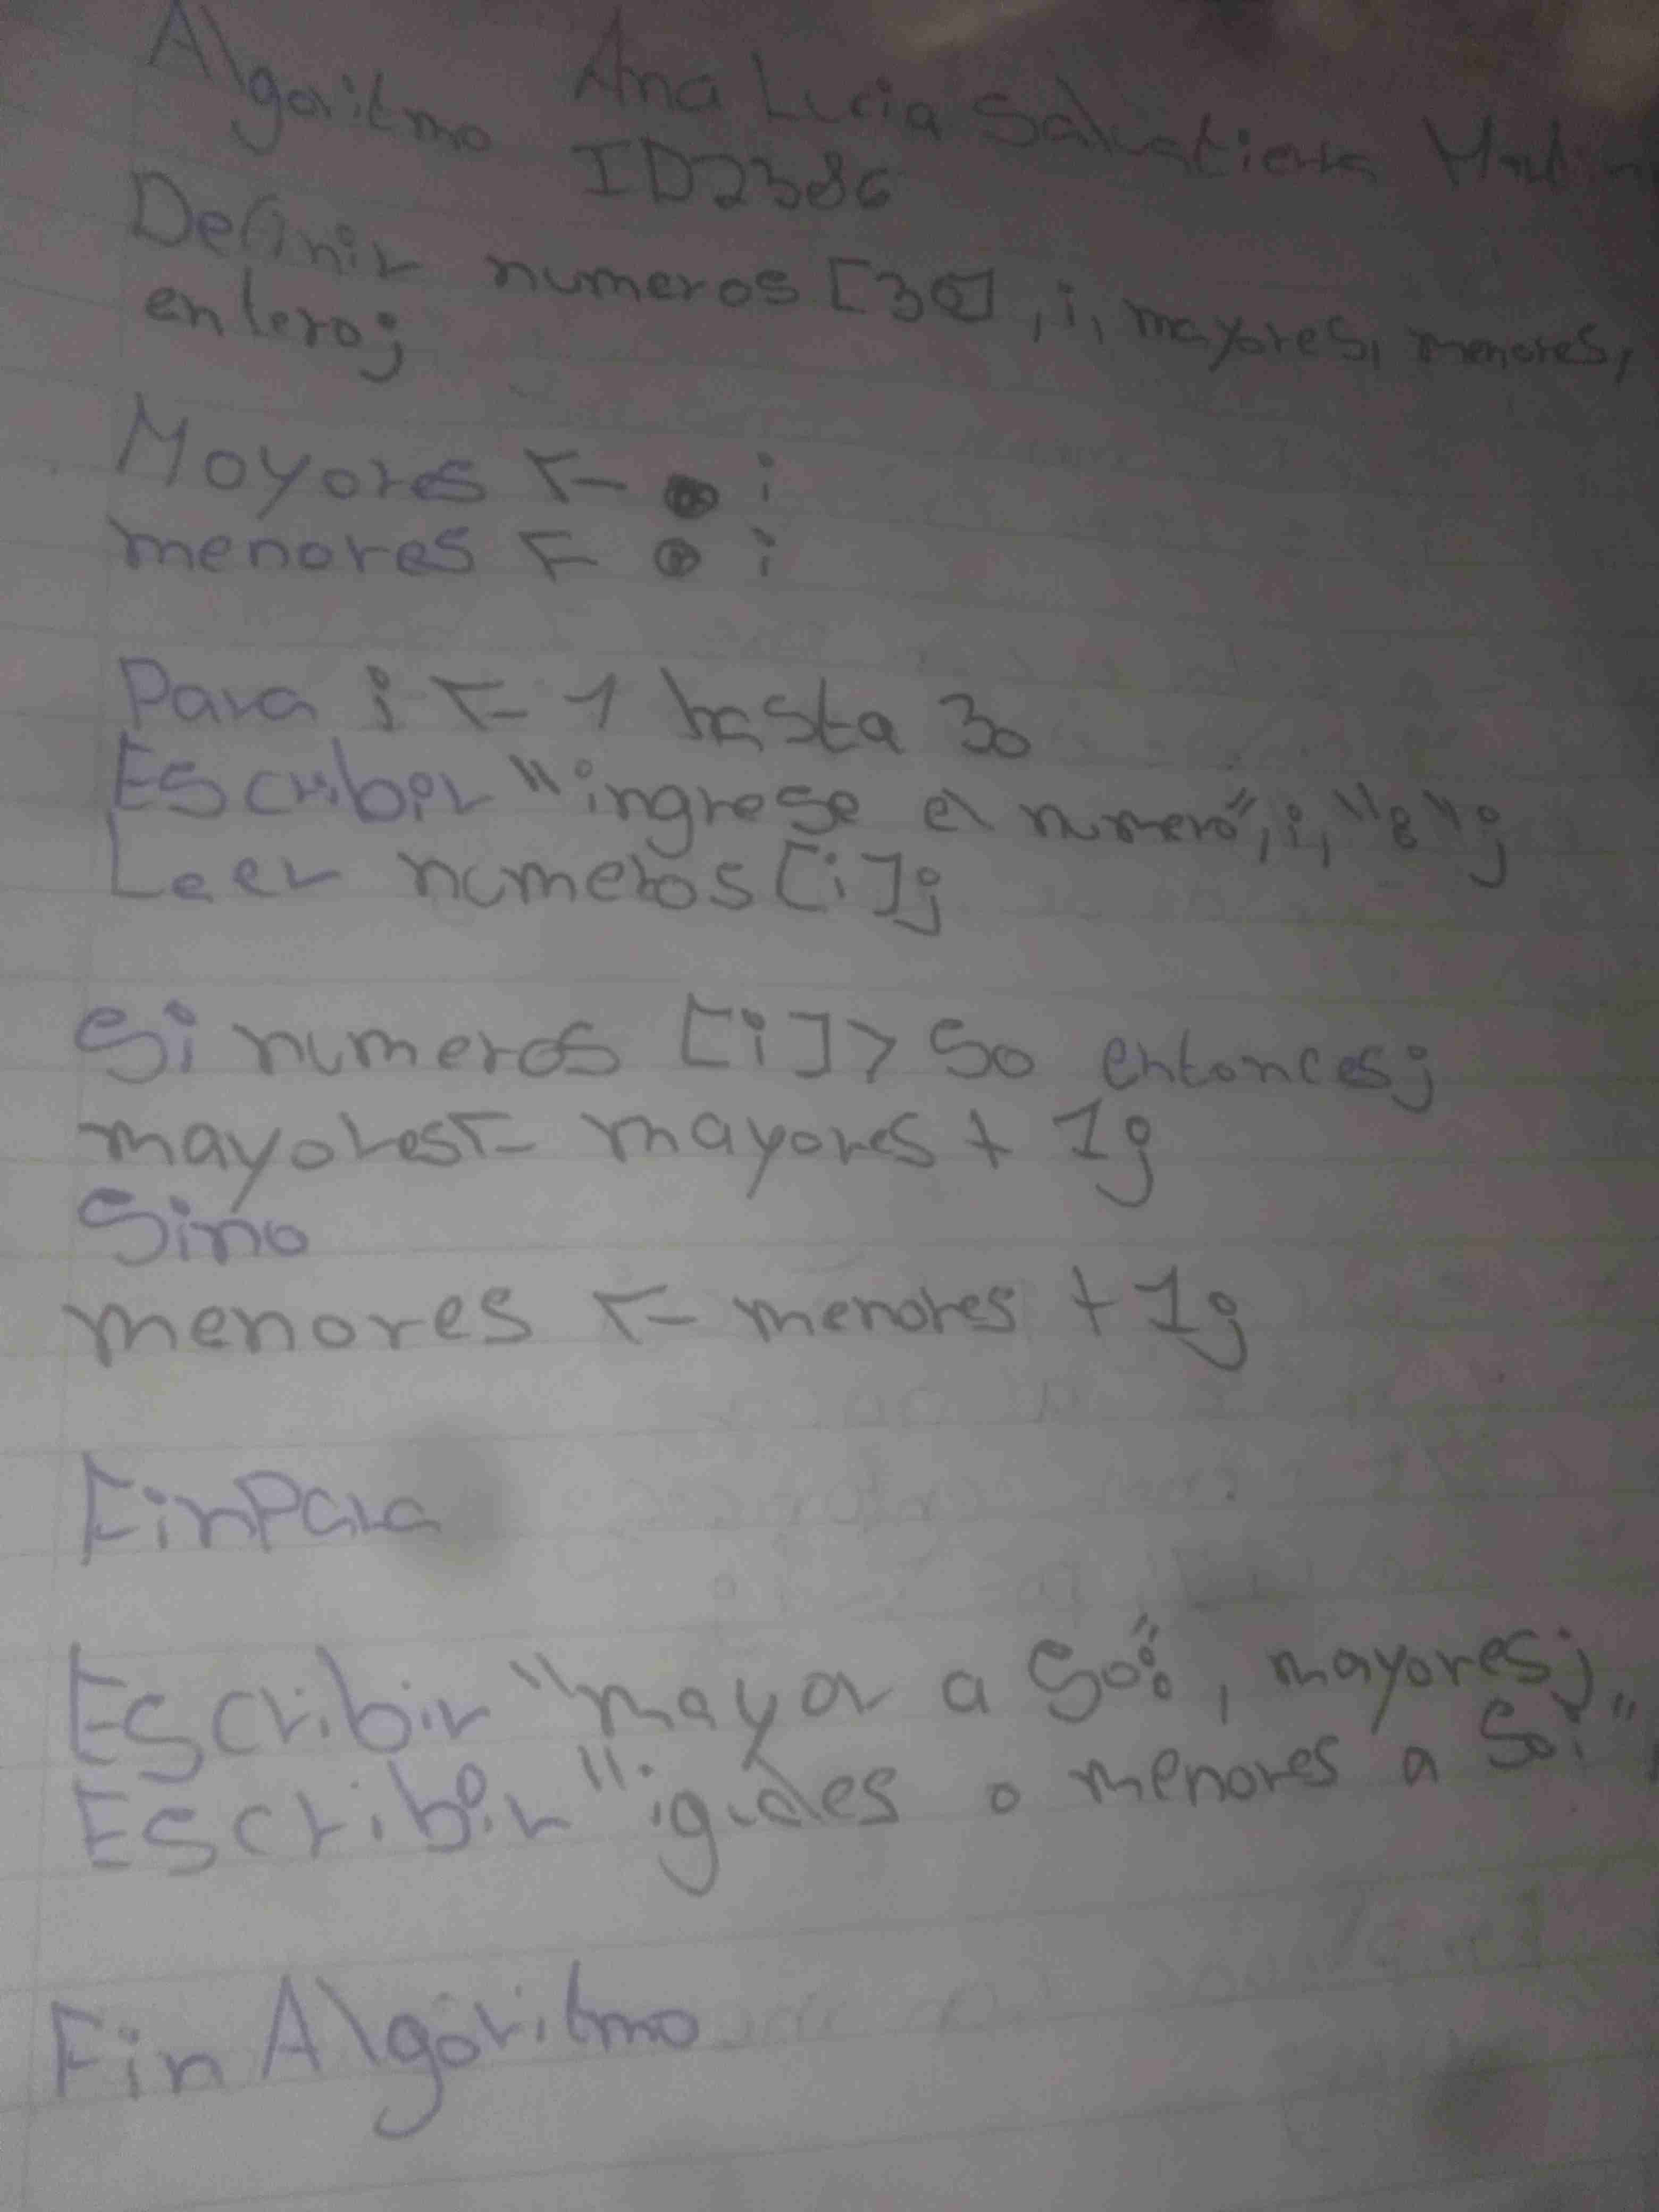 Algoritmo Ana Lucia Salvatierra
ID2386
Definir numeros [30], i, mayores, menores,
entero;
Moyores ← 0;
menores ← 0;
Para i ← 1 hasta 30
Escribir "ingrese el numero", i, ":";
Leer numeros [i];
Si numeros [i] > 50 entonces;
mayores ← mayores + 1;
Sino
menores ← menores + 1;
FinPara
Escribir "mayor a 50:", mayores;
Escribir "igules o menores a 50:"
Fin Algoritmo